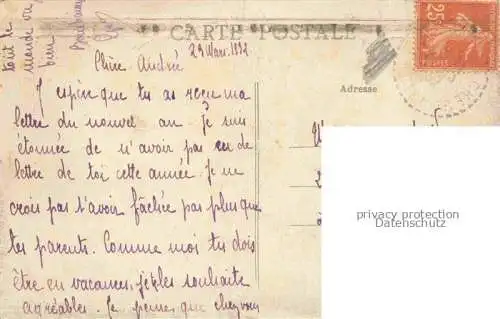 tout le
monde va
bien
CARTE POSTALE
25c
POSTES
29 Mars 1932
Adresse
Chère Andrée
J espère que tu as reçu ma
lettre du nouvel an. Je suis
étonnée de n'avoir pas eu de
lettre de toi cette année. Je ne
crois pas t'avoir fâchée pas plus que
tes parents. Comme moi tu dois
être en vacances, je les souhaite
agréables. Je pense que chez vous
privacy protection
Datenschutz